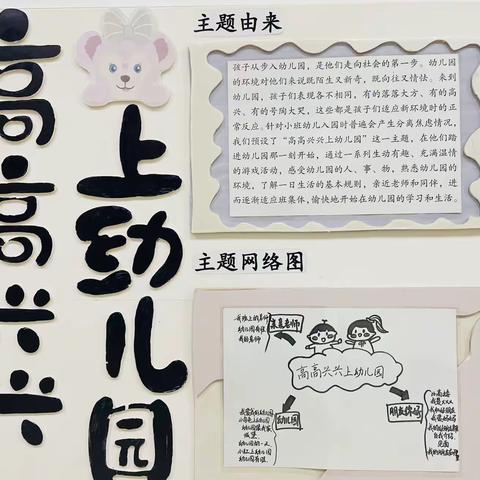 高高兴兴
上幼儿园
主题由来
孩子从步入幼儿园，是他们走向社会的第一步。幼儿园
的环境对他们来说既陌生又新奇，既向往又情怯。来到
幼儿园，孩子们表现各不相同，有的落落大方、有的高
兴、有的号陶大哭，这些都是孩子们适应新环境时的正
常反应。针对小班幼儿入园时普遍会产生分离焦虑情况，
我们预设了“高高兴兴上幼儿园”这一主题，在他们踏
进幼儿园那一刻开始，通过一系列生动有趣、充满温情
的游戏活动，感受幼儿园的人、事、物，熟悉幼儿园的
环境，了解一日生活的基本规则，亲近老师和同伴，进
而逐渐适应班集体，愉快地开始在幼儿园的学习和生活。
主题网络图
亲亲老师
高高兴兴上幼儿园
幼儿园